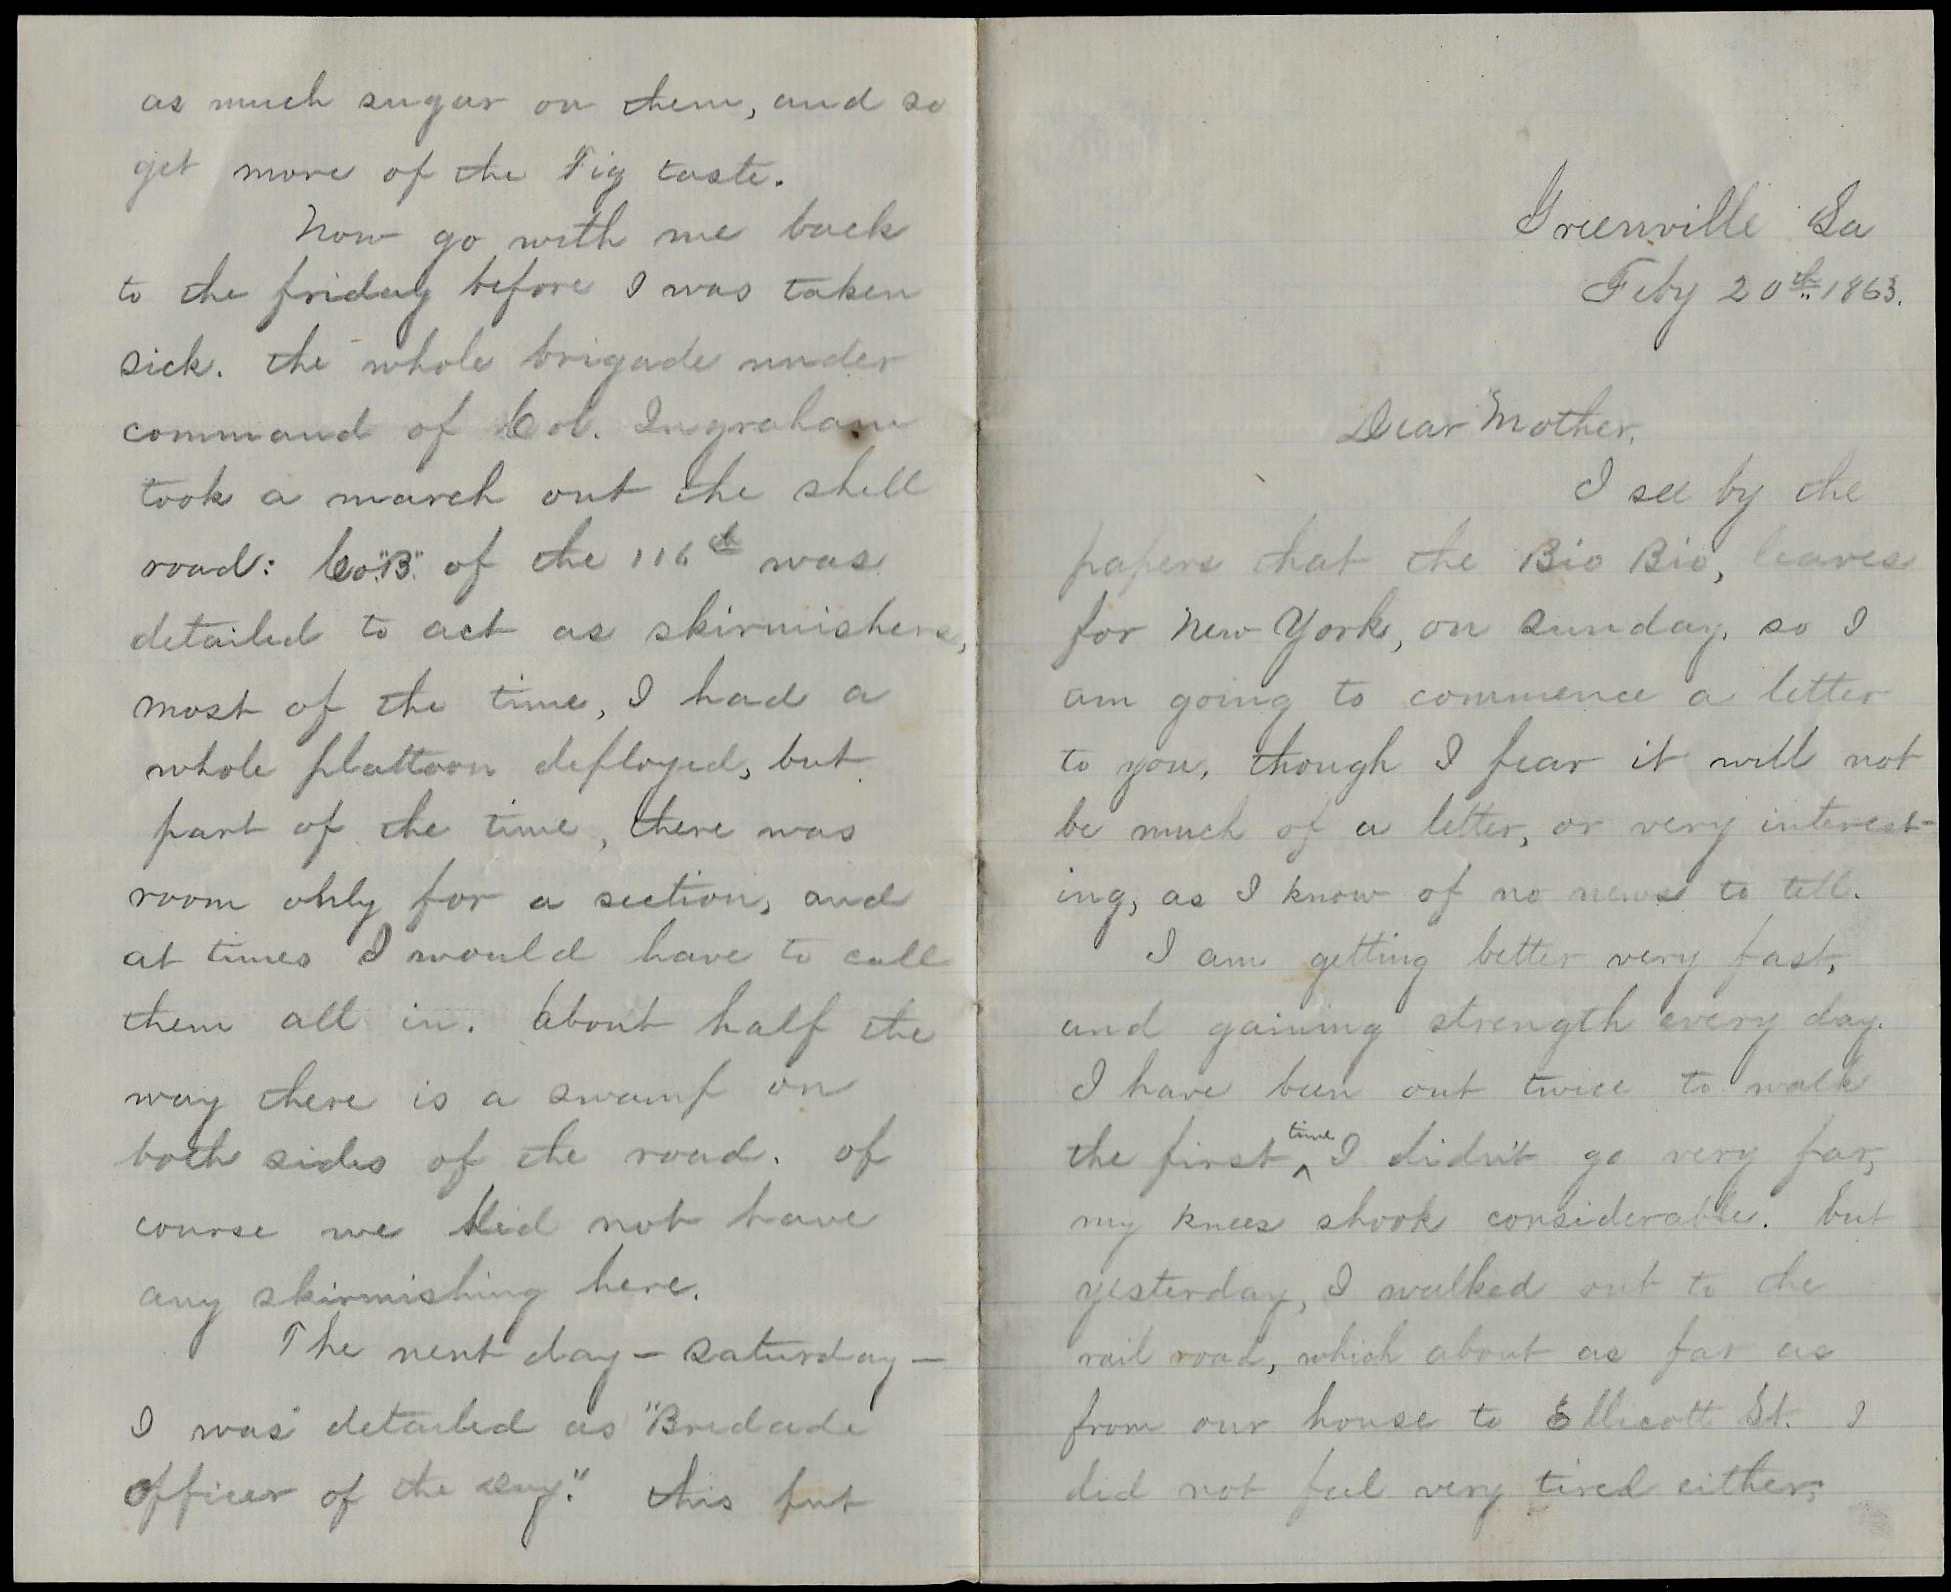 as much sugar on them, and so
get more of the Fig taste.
Now go with me back
to the friday before I was taken
sick. the whole brigade under
command of Col. Ingraham
took a march out the shell
road: Co. "B" of the 116th was
detailed to act as skirmishers,
most of the time, I had a
whole plattoon deployed, but
part of the time, there was
room only for a section, and
at times I would have to call
them all in. About half the
way there is a swamp on
both sides of the road. of
course we did not have
any skirmishing here.
The next day – Saturday –
I was detailed as "Bredade
officer of the Day." this put
Greenville La
Feby 20th 1863.
Dear Mother,
I see by the
papers that the Bio Bio, leaves
for New York, on Sunday. so I
am going to commence a letter
to you, though I fear it will not
be much of a letter, or very interest-
ing, as I know of no news to tell.
I am getting better very fast,
and gaining strength every day.
I have been out twice to walk
the first ^time I didn't go very far,
my knees shook considerable. but
yesterday, I walked out to the
rail road, which about as far as
from our house to Ellicott St. I
did not feel very tired either;